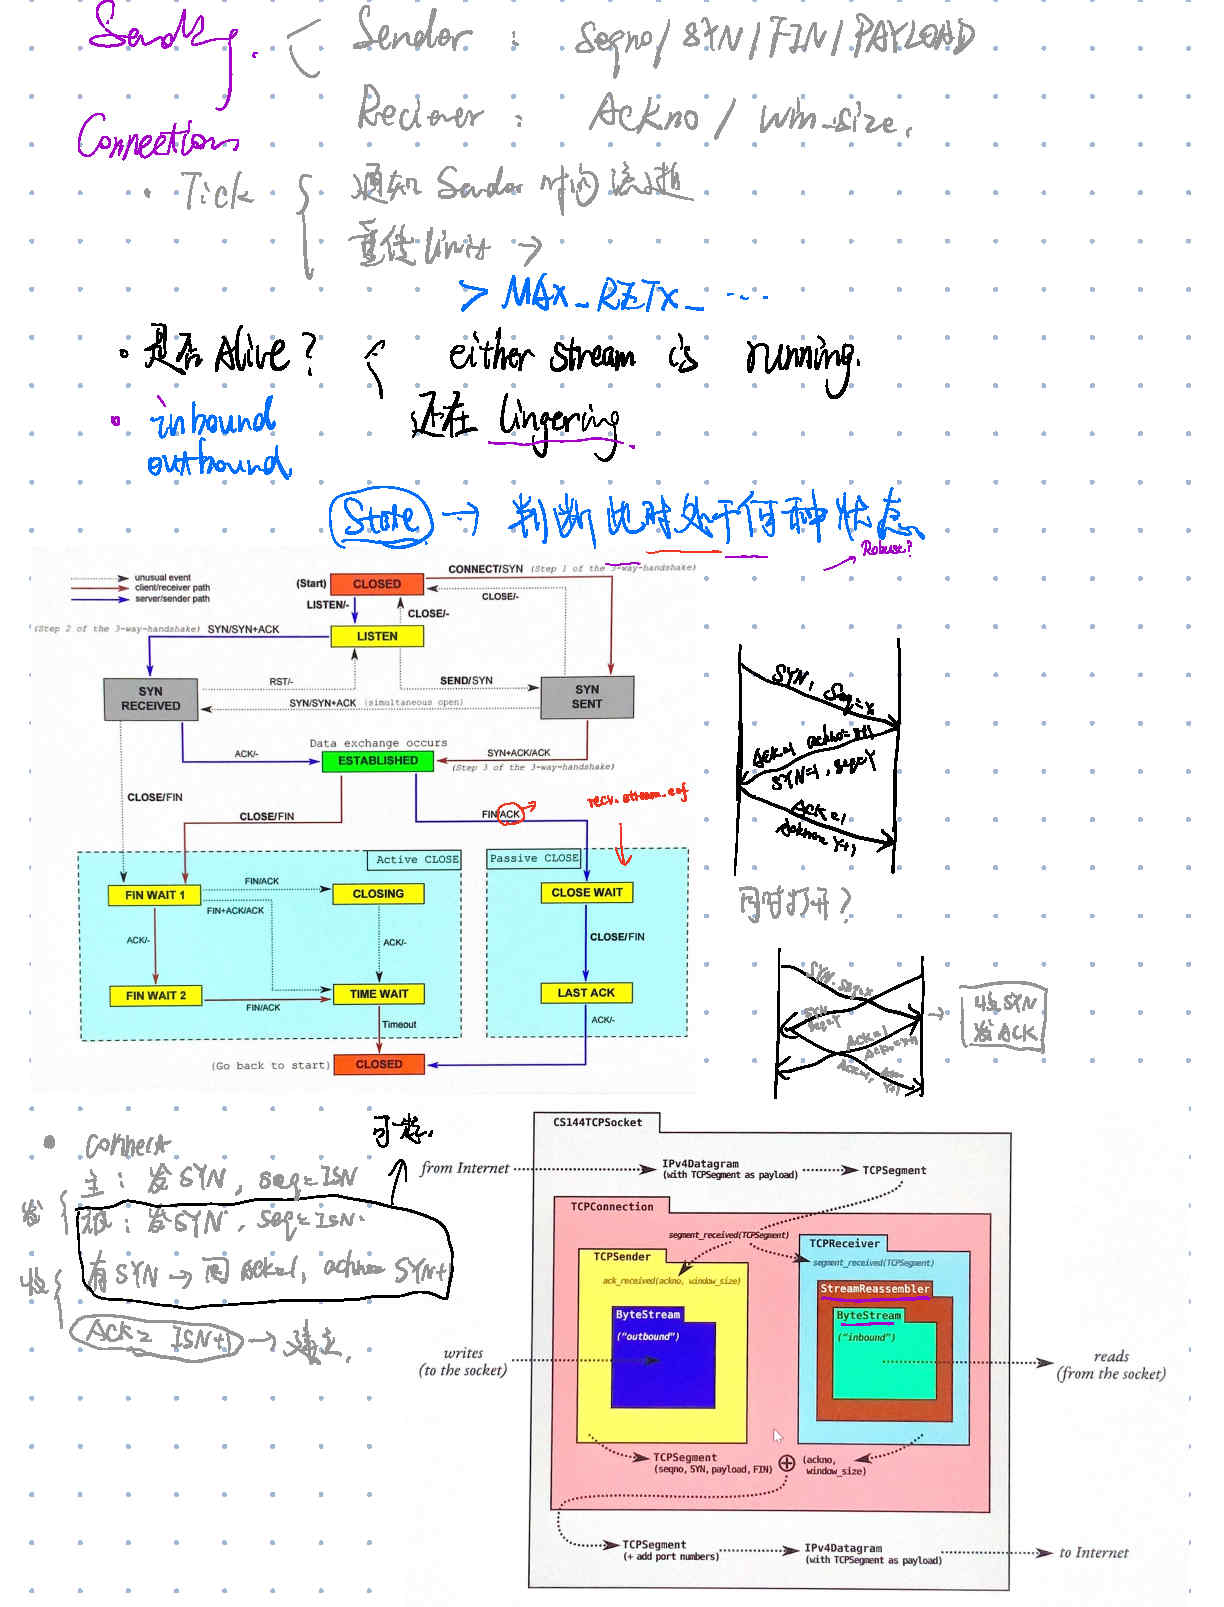 Sending.
Sender : Seqno / SYN / FIN / PAYLOAD
Reciever : Ackno / win_size.
Connection
· Tick
通知 Sender 时间流逝
重传 limit →
> MAX_RETX_ ...
· 是否 Alive? either stream is running.
还在 lingering.
· inbound
outbound
State → 判断此时处于何种状态
Robust?
unusual event
client/receiver path
server/sender path
(Start)
CLOSED
CONNECT/SYN (Step 1 of the 3-way-handshake)
CLOSE/-
LISTEN/-
CLOSE/-
(Step 2 of the 3-way-handshake) SYN/SYN+ACK
LISTEN
RST/-
SEND/SYN
SYN
RECEIVED
SYN
SENT
SYN/SYN+ACK (simultaneous open)
Data exchange occurs
ACK/-
ESTABLISHED
SYN+ACK/ACK
(Step 3 of the 3-way-handshake)
CLOSE/FIN
CLOSE/FIN
FIN/ACK
recv.stream.eof
Active CLOSE
Passive CLOSE
FIN WAIT 1
FIN/ACK
CLOSING
CLOSE WAIT
FIN+ACK/ACK
ACK/-
ACK/-
CLOSE/FIN
FIN WAIT 2
FIN/ACK
TIME WAIT
LAST ACK
Timeout
ACK/-
(Go back to start)
CLOSED
SYN, Seq=x
Ack=1 ackno=x+1
SYN=1, seq=Y
ACK=1
Ackno=Y+1
同时打开?
SYN. Seq=x
SYN
Seq=Y
ACK=1
Ackno=x+1
ACK=1,
Y+1
收 SYN
发 ACK
· connect
主: 发 SYN, seq=ISN
发
被: 发 SYN, seq=ISN.
收
有 SYN → 回 ACK=1, ackno SYN+1
ACK= ISN+1 → 建立.
CS144TCPSocket
from Internet
IPv4Datagram
(with TCPSegment as payload)
TCPSegment
TCPConnection
segment_received(TCPSegment)
TCPSender
TCPReceiver
ack_received(ackno, window_size)
segment_received(TCPSegment)
StreamReassembler
ByteStream
("outbound")
ByteStream
("inbound")
writes
(to the socket)
reads
(from the socket)
TCPSegment
(seqno, SYN, payload, FIN)
(ackno,
window_size)
TCPSegment
(+ add port numbers)
IPv4Datagram
(with TCPSegment as payload)
to Internet